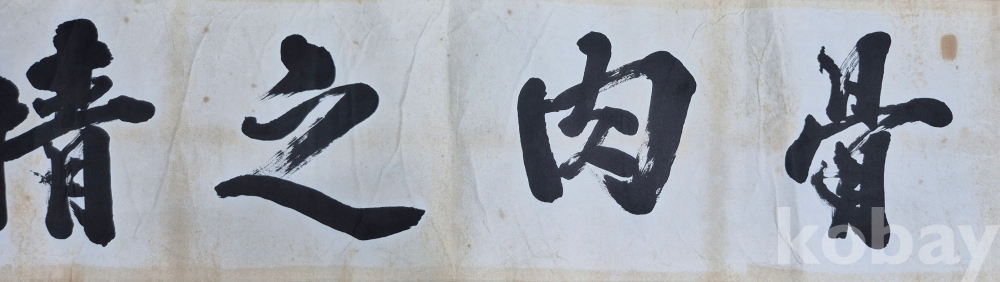 骨肉之情
kobay